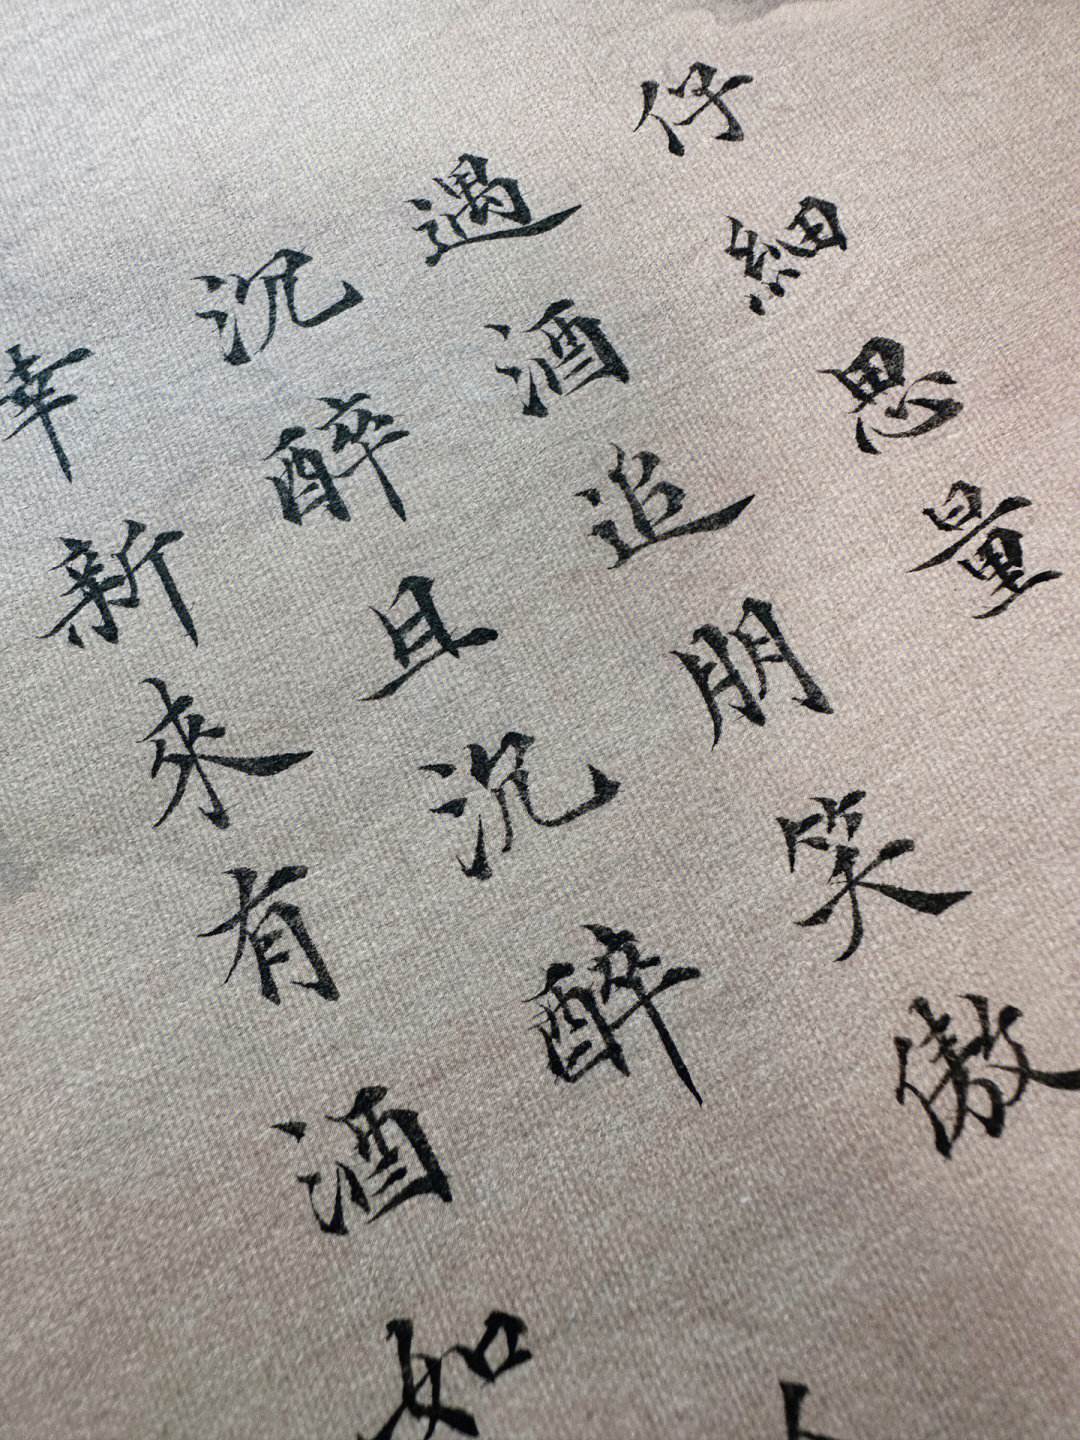 仔細思量
遇酒追朋笑傲
沉醉且沉醉
幸新來有酒如